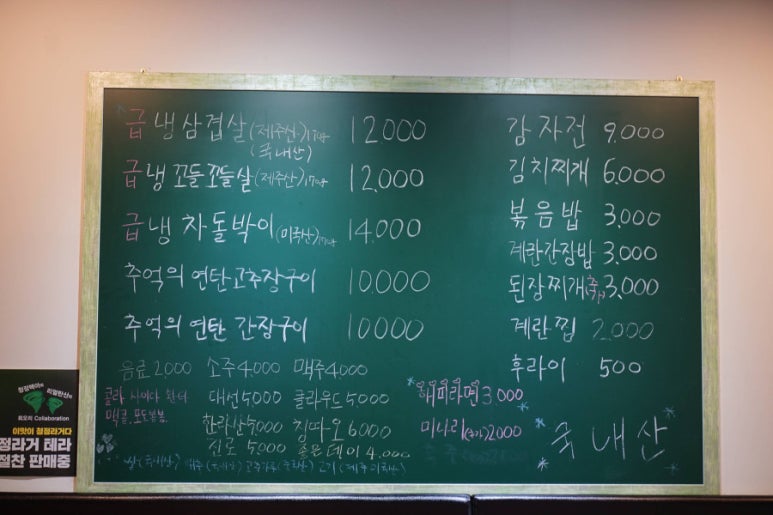 급냉삼겹살(제주산)170g 12,000
(국내산)
급냉꼬들꼬들살(제주산)170g 12,000
급냉차돌박이(미국산)170g 14,000
추억의 연탄고추장구이 10,000
추억의 연탄 간장구이 10000
음료2000 소주4,000 맥주4,000
콜라 사이다 환타 대선5,000 클라우드5,000
맥콜.포도봉봉 한라산5,000 칭따오6000
진로 5,000 좋은데이 4,000
쌀(국내산) 배추(국내산) 고추가루(국내산) 고기(제주
감자전 9,000
김치찌개 6,000
볶음밥 3,000
계란간짐밥 3,000
된장찌개(추가)3,000
계란찜 2,000
후라이 500
해피라면3,000
미나리(추가)2000
국내산
청정맥아의 리얼탄산의
최오리 Collaboration
이맛이 청정라거다
정라거 테라
절찬 판매중